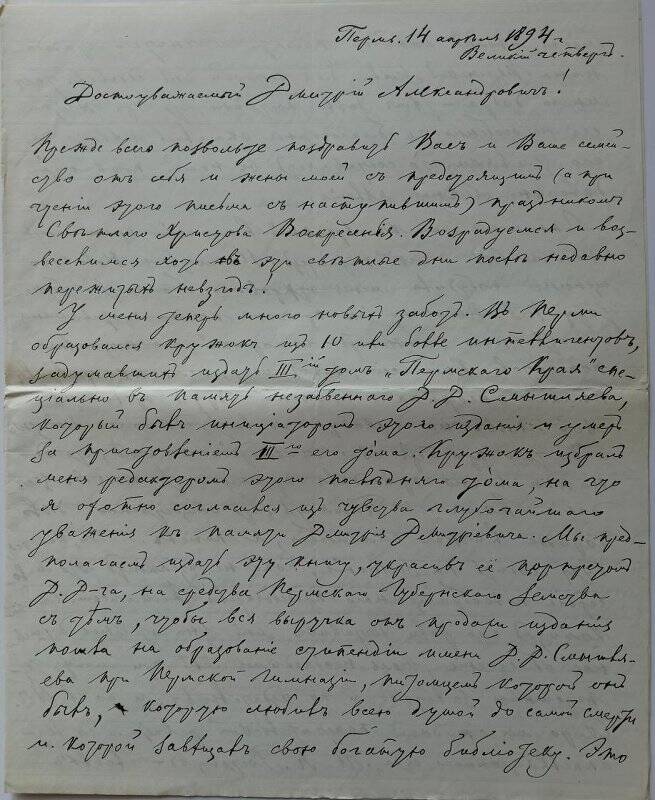 Пермь. 14 апрѣля 1894 г.
Великій четвергъ.
Достоуважаемый Дмитрій Александровичъ!
Прежде всего позвольте поздравить Васъ и Ваше семей-
ство отъ себя и жены моей съ предстоящимъ (а при
чтеніи этого письма съ наступившимъ) праздникомъ
Свѣтлаго Христова Воскресенья. Возрадуемся и воз-
веселимся хоть въ эти свѣтлые дни послѣ недавно
пережитыхъ невзгодъ!
У меня теперь много новыхъ заботъ. Въ Перми
образовался кружокъ изъ 10 или болѣе интеллигентовъ,
задумавшихъ издать III-ій томъ „Пермскаго Края" спе-
ціально въ память незабвеннаго Д. Д. Смышляева,
который былъ иниціаторомъ этого изданія и умеръ
за приготовленіемъ III-го его тома. Кружокъ избралъ
меня редакторомъ этого послѣдняго тома, на что
я охотно согласился изъ чувства глубочайшаго
уваженія къ памяти Дмитрія Дмитріевича. Мы пред-
полагаемъ издать эту книгу, украсивъ её портретомъ
Д. Д-ча, на средства Пермскаго Губернскаго Земства
съ тѣмъ, чтобы вся выручка отъ продажи изданія
пошла на образованіе стипендіи имени Д. Д. Смышля-
ева при Пермской гимназіи, питомцемъ которой онъ
былъ, которую любилъ всею душой до самой смерти
и которой завѣщалъ свою богатую библіотеку. Это